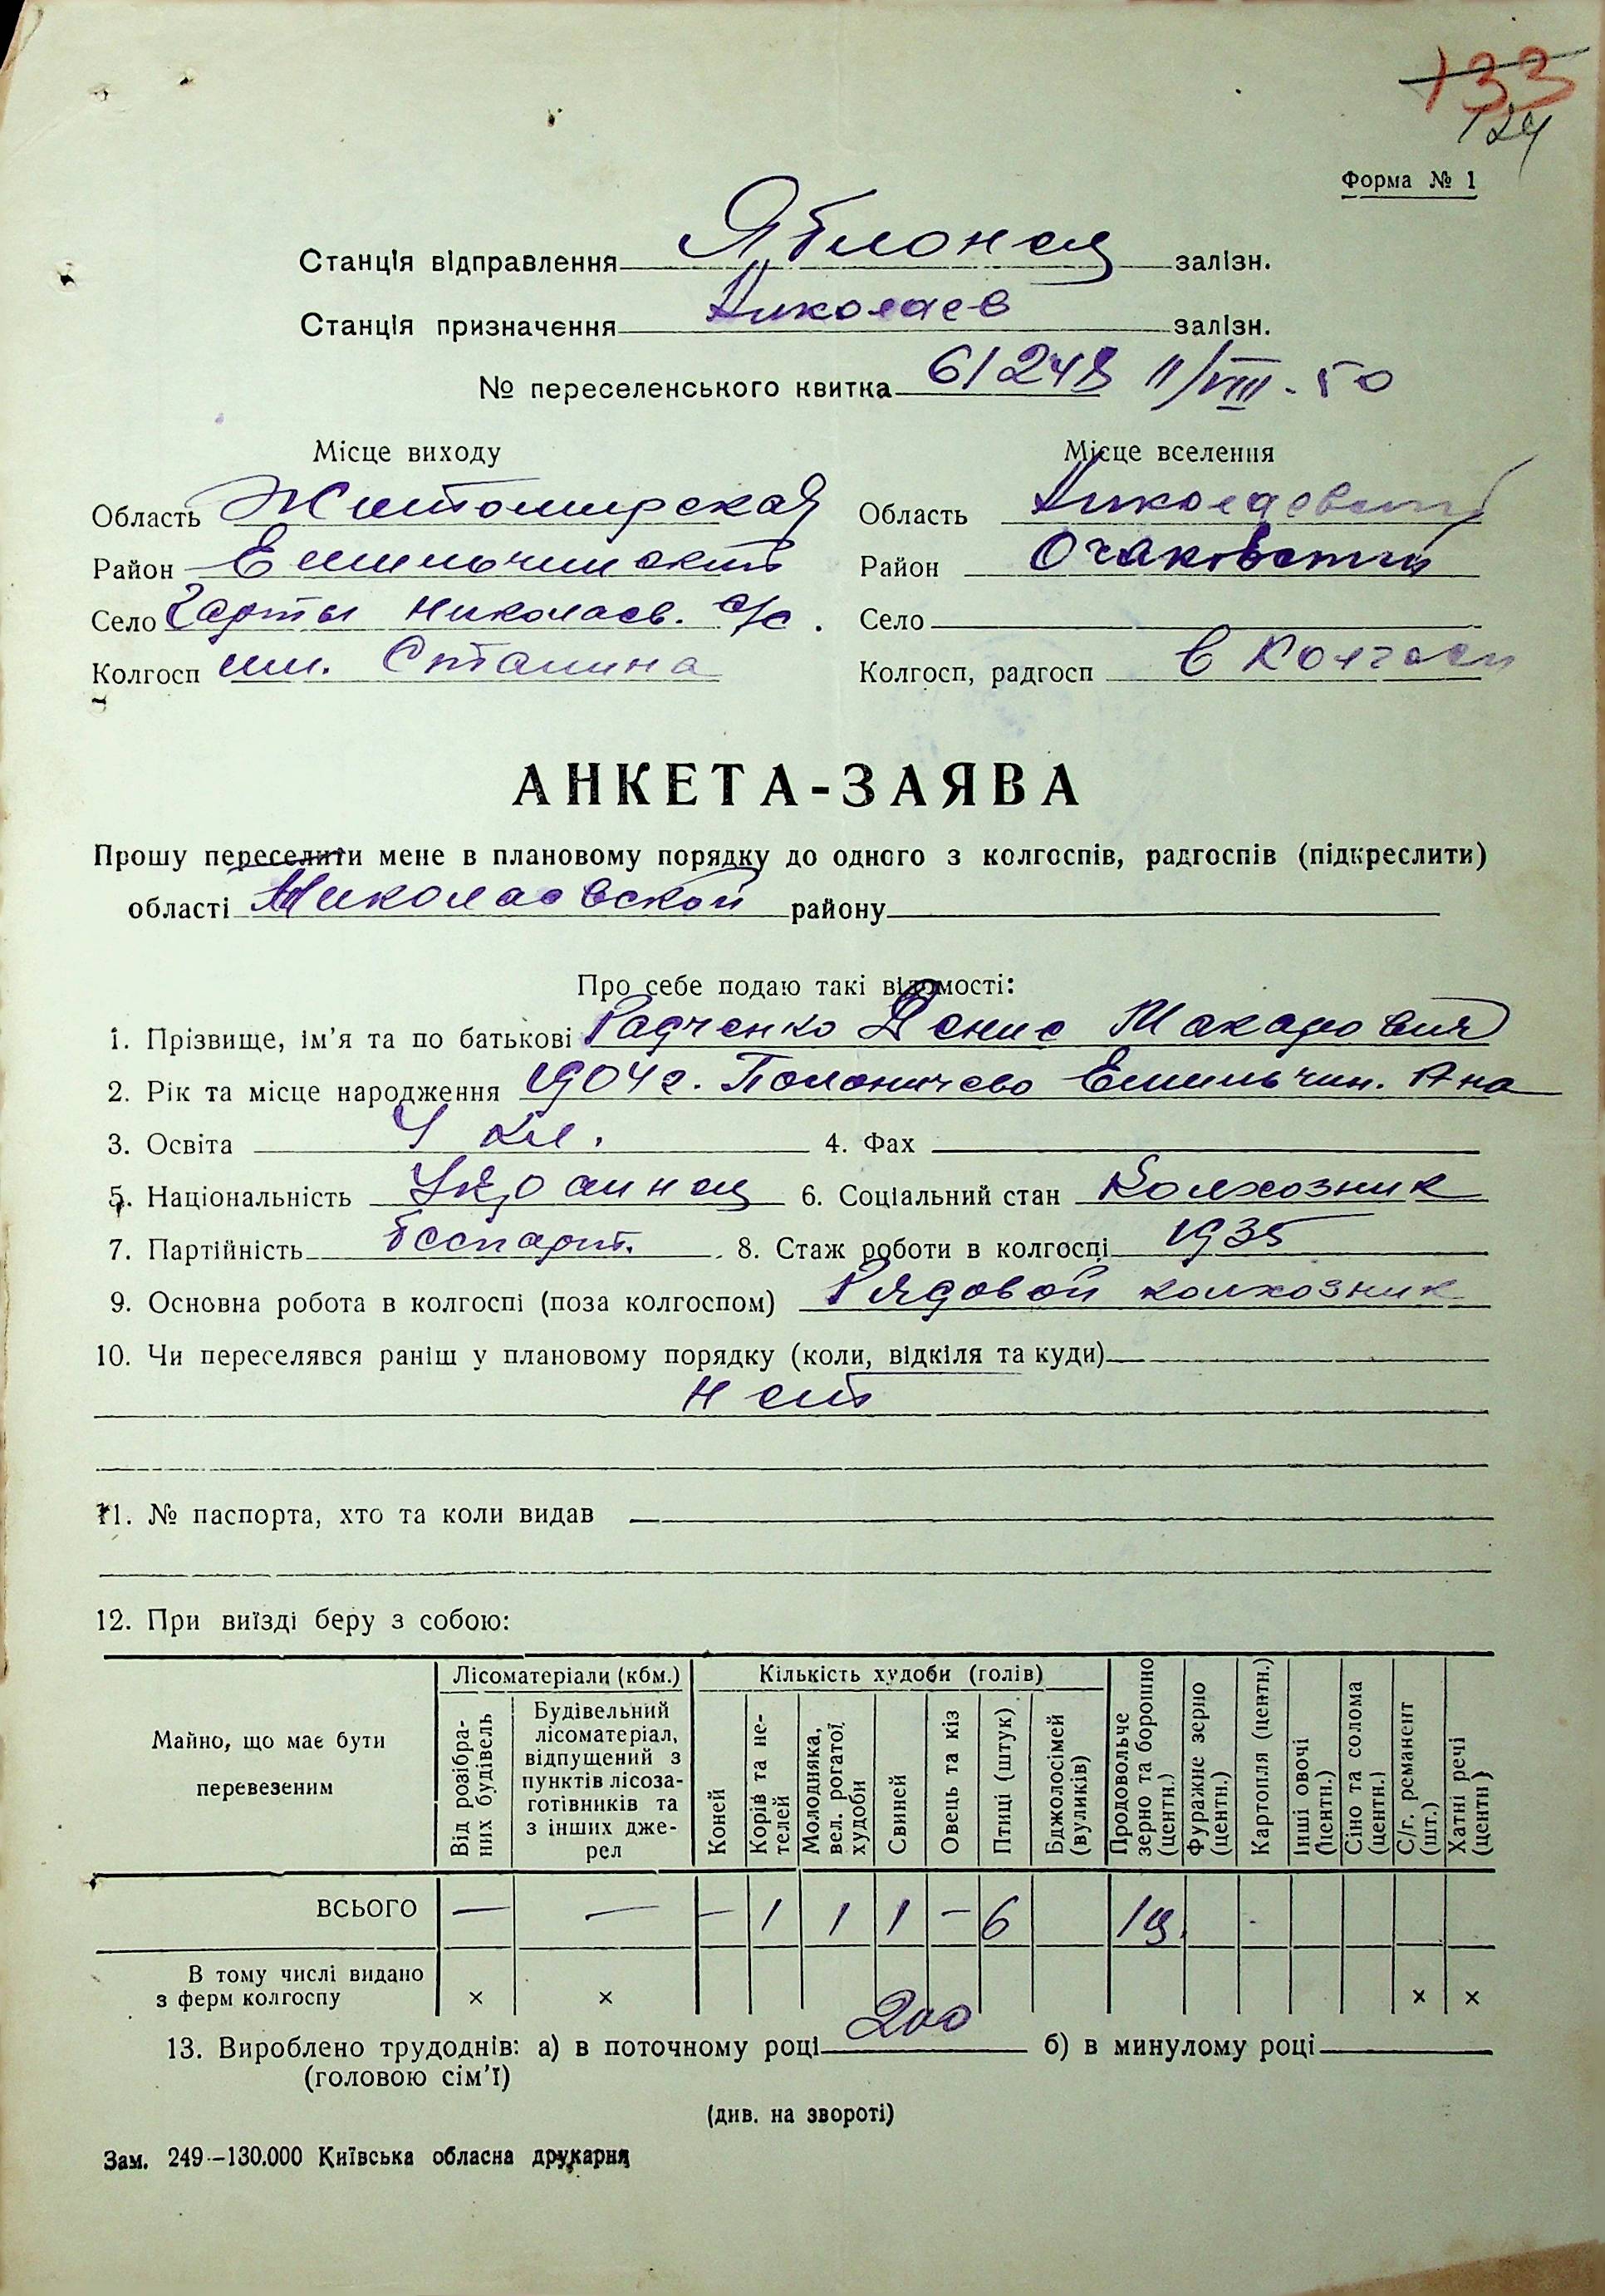 133
124
Форма № 1
Станція відправлення Яблонец залізн.
Станція призначення Николаев залізн.
№ переселенського квитка 61248 11/VIII - 50
Місце виходу
Область Житомирская
Район Емильчинский
Село Николаев. с/с.
Колгосп им. Сталина
Місце вселення
Область Николаевский
Район Очаковский
Село
Колгосп, радгосп в колгосп
АНКЕТА-ЗАЯВА
Прошу переселити мене в плановому порядку до одного з колгоспів, радгоспів (підкреслити)
області Николаевской району
Про себе подаю такі відомості:
1. Прізвище, ім'я та по батькові Радченко Денис Макарович
2. Рік та місце народження 1904 г. Емильчин.
3. Освіта 4 кл. 4. Фах
5. Національність Украинец 6. Соціальний стан Колхозник
7. Партійність беспарт. 8. Стаж роботи в колгоспі 1935
9. Основна робота в колгоспі (поза колгоспом) Рядовой колхозник
10. Чи переселявся раніш у плановому порядку (коли, відкіля та куди)
нет
11. № паспорта, хто та коли видав
12. При виїзді беру з собою:
Майно, що має бути перевезеним
Лісоматеріали (кбм.)
Від розібраних будівель
Будівельний лісоматеріал, відпущений з пунктів лісозаготівників та з інших джерел
Кількість худоби (голів)
Коней
Корів та нетелей
Молодняка, вел. рогатої худоби
Свиней
Овець та кіз
Птиці (штук)
Бджолосімей (вуликів)
Продовольче зерно та борошно (центн.)
Фуражне зерно (центн.)
Картопля (центн.)
Інші овочі (центн.)
Сіно та солома (центн.)
С/г. реманент (шт.)
Хатні речі (центн)
ВСЬОГО — — — 1 1 1 — 6 1ц.
В тому числі видано з ферм колгоспу × × × ×
13. Вироблено трудоднів: а) в поточному році 200 б) в минулому році
(головою сім'ї)
(див. на звороті)
Зам. 249—130.000 Київська обласна друкарня